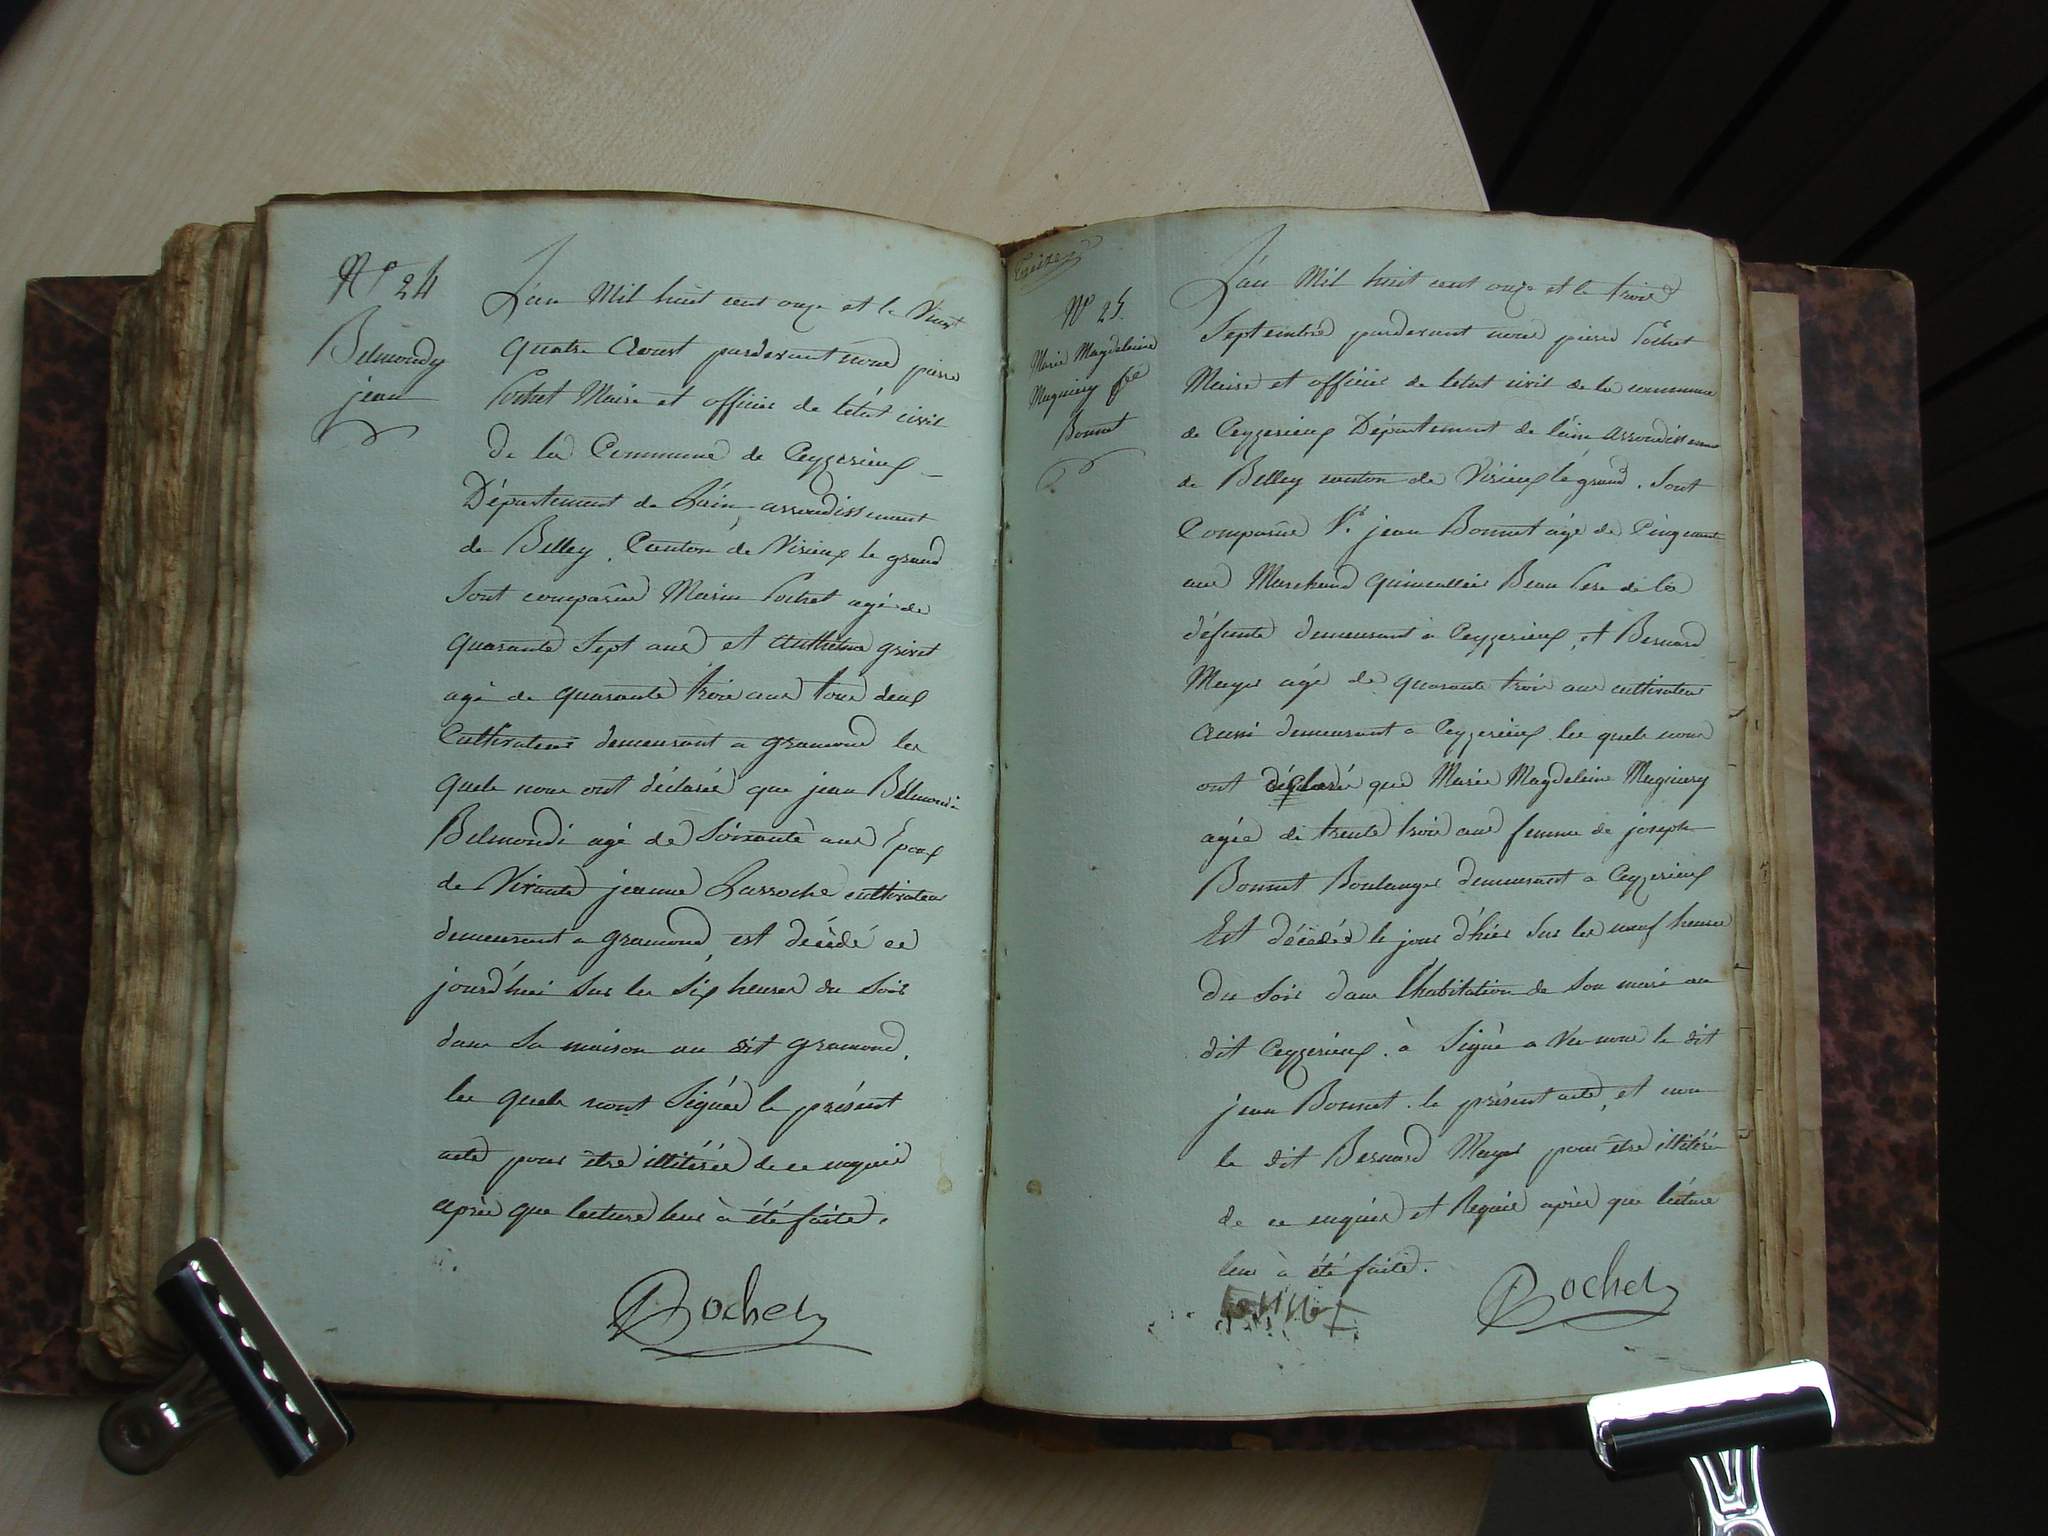 N° 24
Belmondy
jean
L'an Mil huit cent onze et le Vingt
quatre Aoust pardevant nous pierre
Cochet Maire et officier de létat civil
de la Commune de Ceyzerieux
Département de Lain, arrondissement
de Belley, Canton de Virieux le grand
Sont comparûs Marin Cochet agé de
quarante Sept ans et anthelme grivet
agé de quarante trois ans tous deux
Cultivateurs demeurant a gramond les
quels nous ont déclaré que jean Belmondi
Belmondi agé de Soixante ans Epoux
de Vivante jeanne Larroche cultivateur
demeurant a gramond, est décédé ce
jourd'hui sur les Six heures du Soir
dans Sa maison au dit gramond,
les quels n'ont Signés le présent
acte pour être illitérés de ce enquis
après que lecture leur à été faite.
Cochet
treize
N° 25
Marie Magdeleine
Mugniery fe
Bonnet
L'an Mil huit cent onze et le trois
Septembre pardevant nous pierre Cochet
Maire et officier de létat civil de la commune
de Ceyzerieux Département de lain arrondissement
de Belley canton de Virieux le grand. Sont
Comparûs Sr. jean Bonnet agé de Cinquante
ans Marchand quincallier Beau Pere de la
défunte demeurant à Ceyzerieux, et Bernard
Mugnier agé de quarante trois ans cultivateur
aussi demeurant a Ceyzerieux les quels nous
ont déclaré que Marie Magdeleine Mugniery
agée de trente trois ans femme de joseph
Bonnet Boulanger demeurant a Ceyzerieux
Est décédée le jour d'hier Sur les neuf heures
du Soir dans l'habitation de Son mari au
dit Ceyzerieux. à Signé avec nous le dit
jean Bonnet. le présent acte, et non
le dit Bernard pour être illitéré
de ce enquis et Requis après que lecture
leur à été faite.
bonnet
Cochet